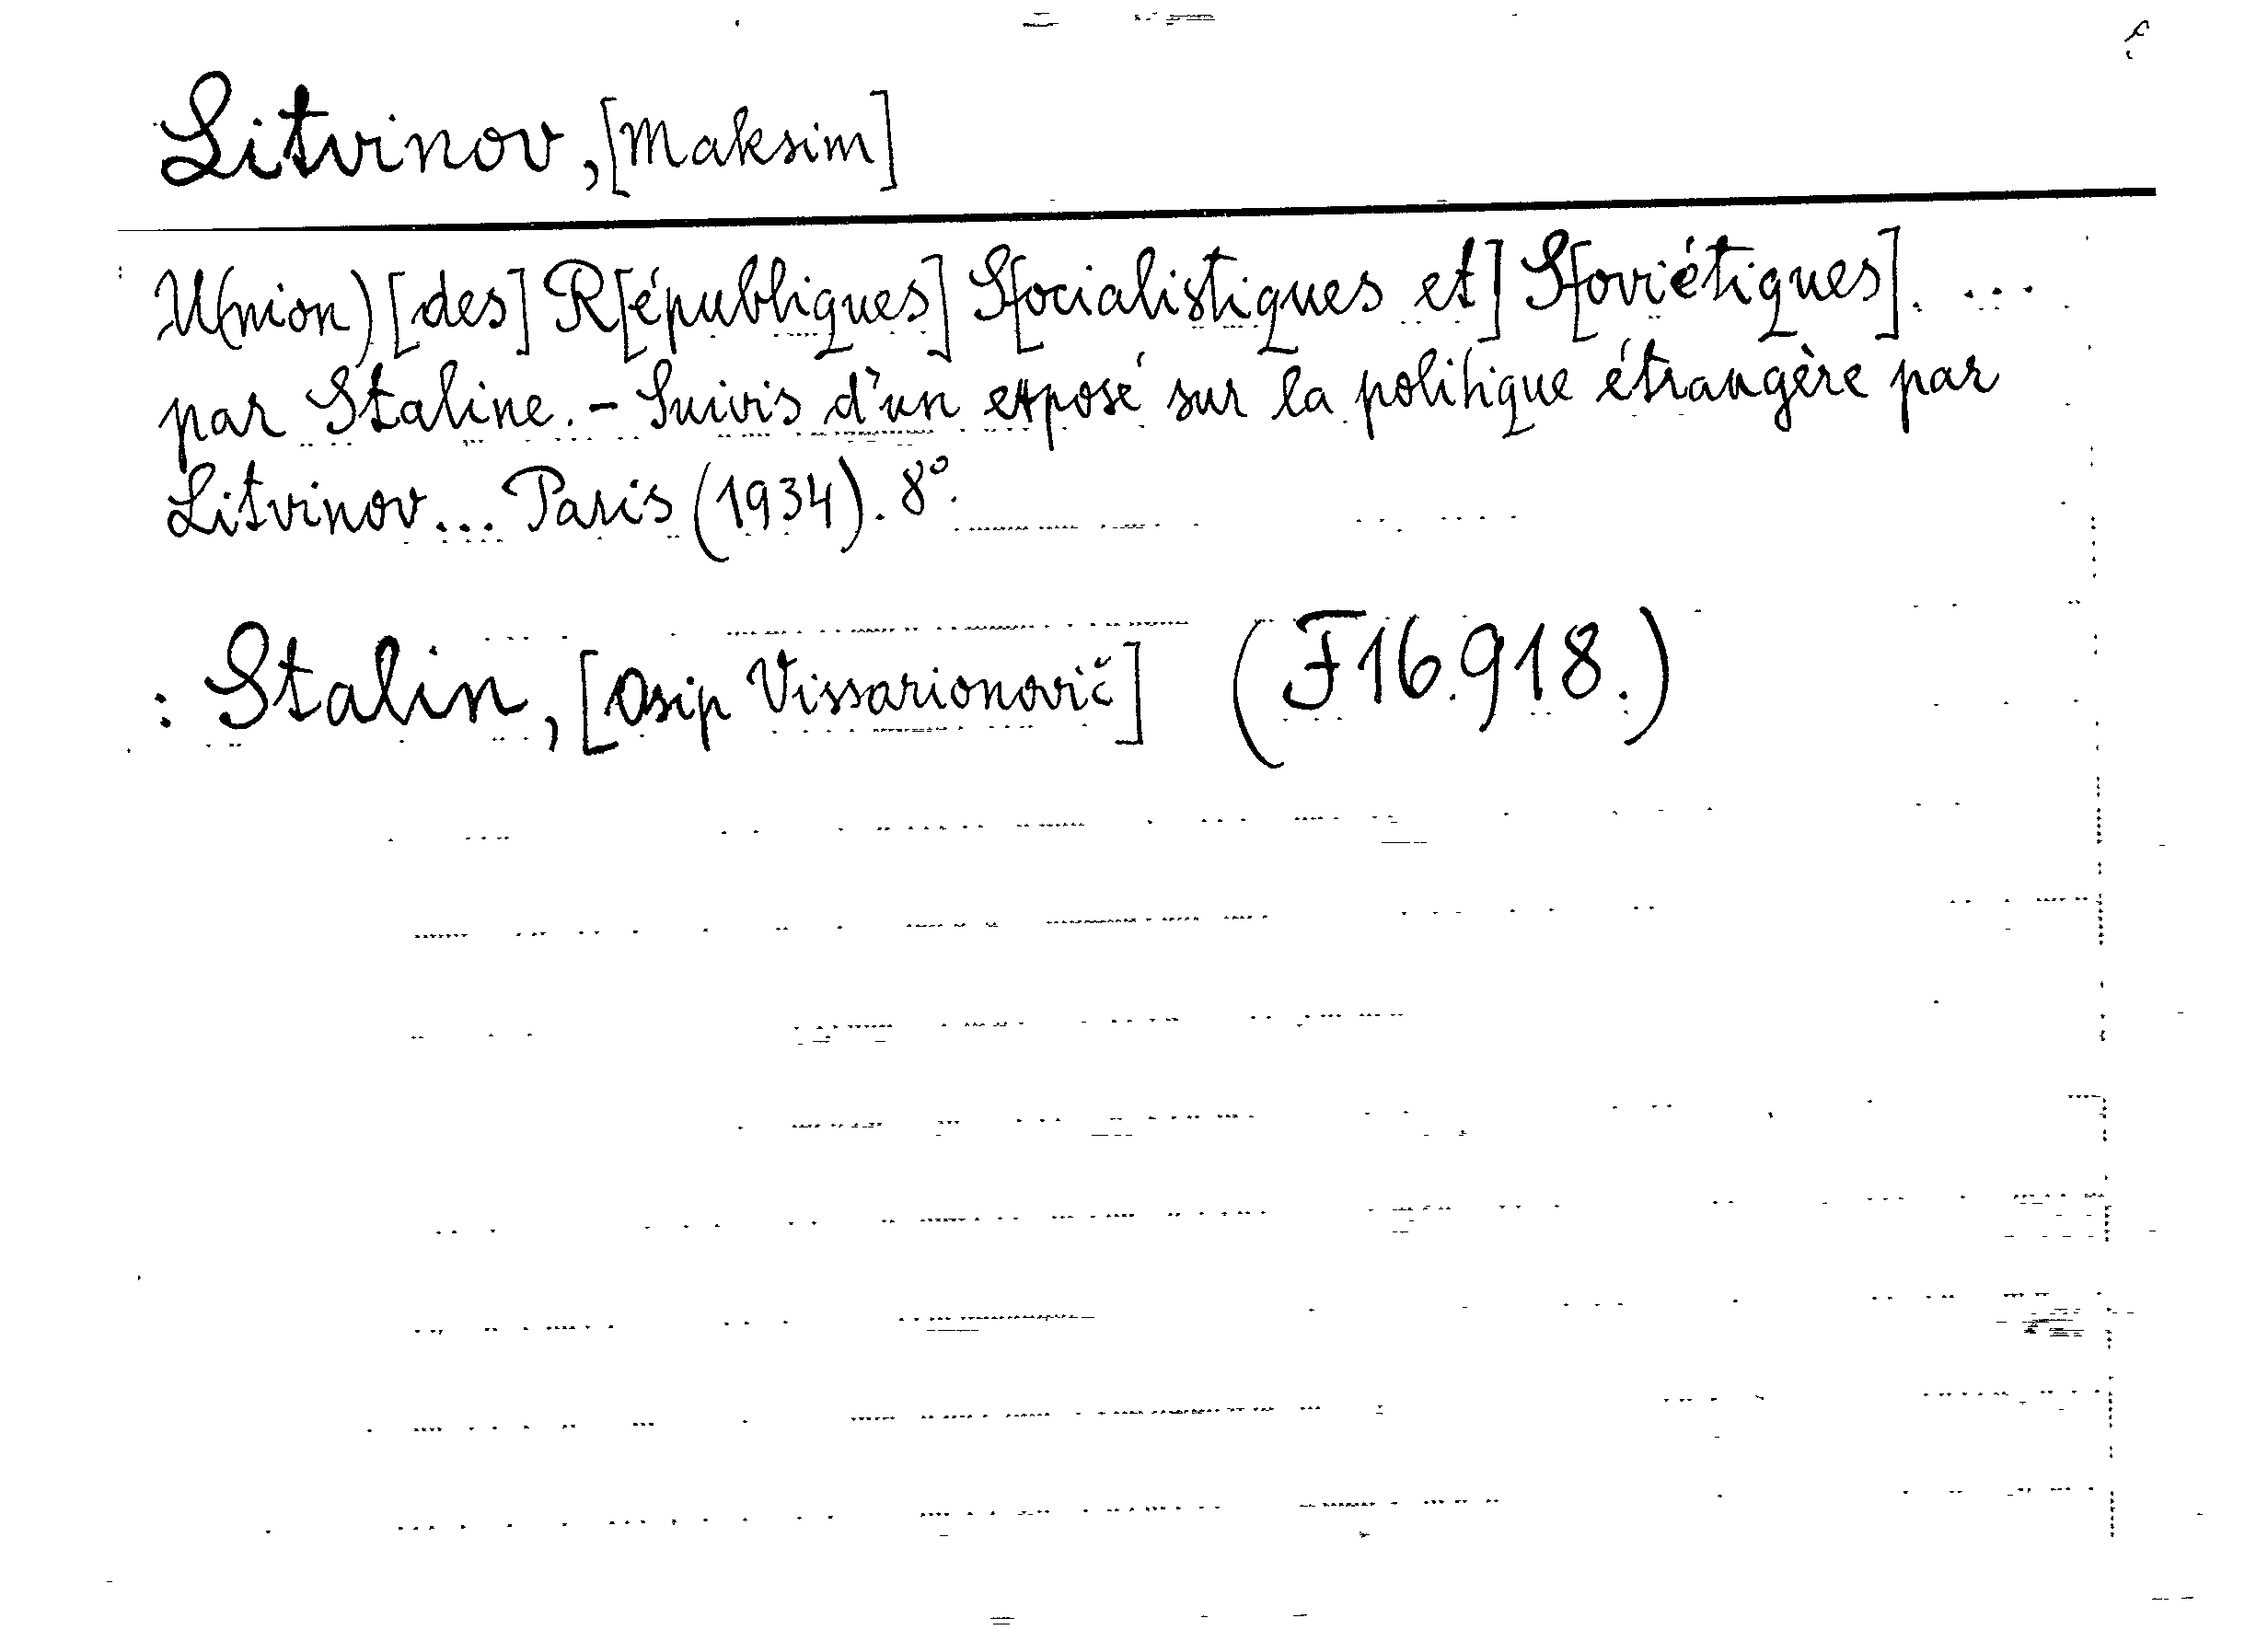 Litvinov, [Maksim]
U(nion) [des] R[épubliques] S[ocialistiques et] S[oviétiques]. ...
par Staline. - Suivis d'un exposé sur la politique étrangère par
Litvinov... Paris (1934). 8°.
: Stalin, [Osip Vissarionovič] (F16.918.)